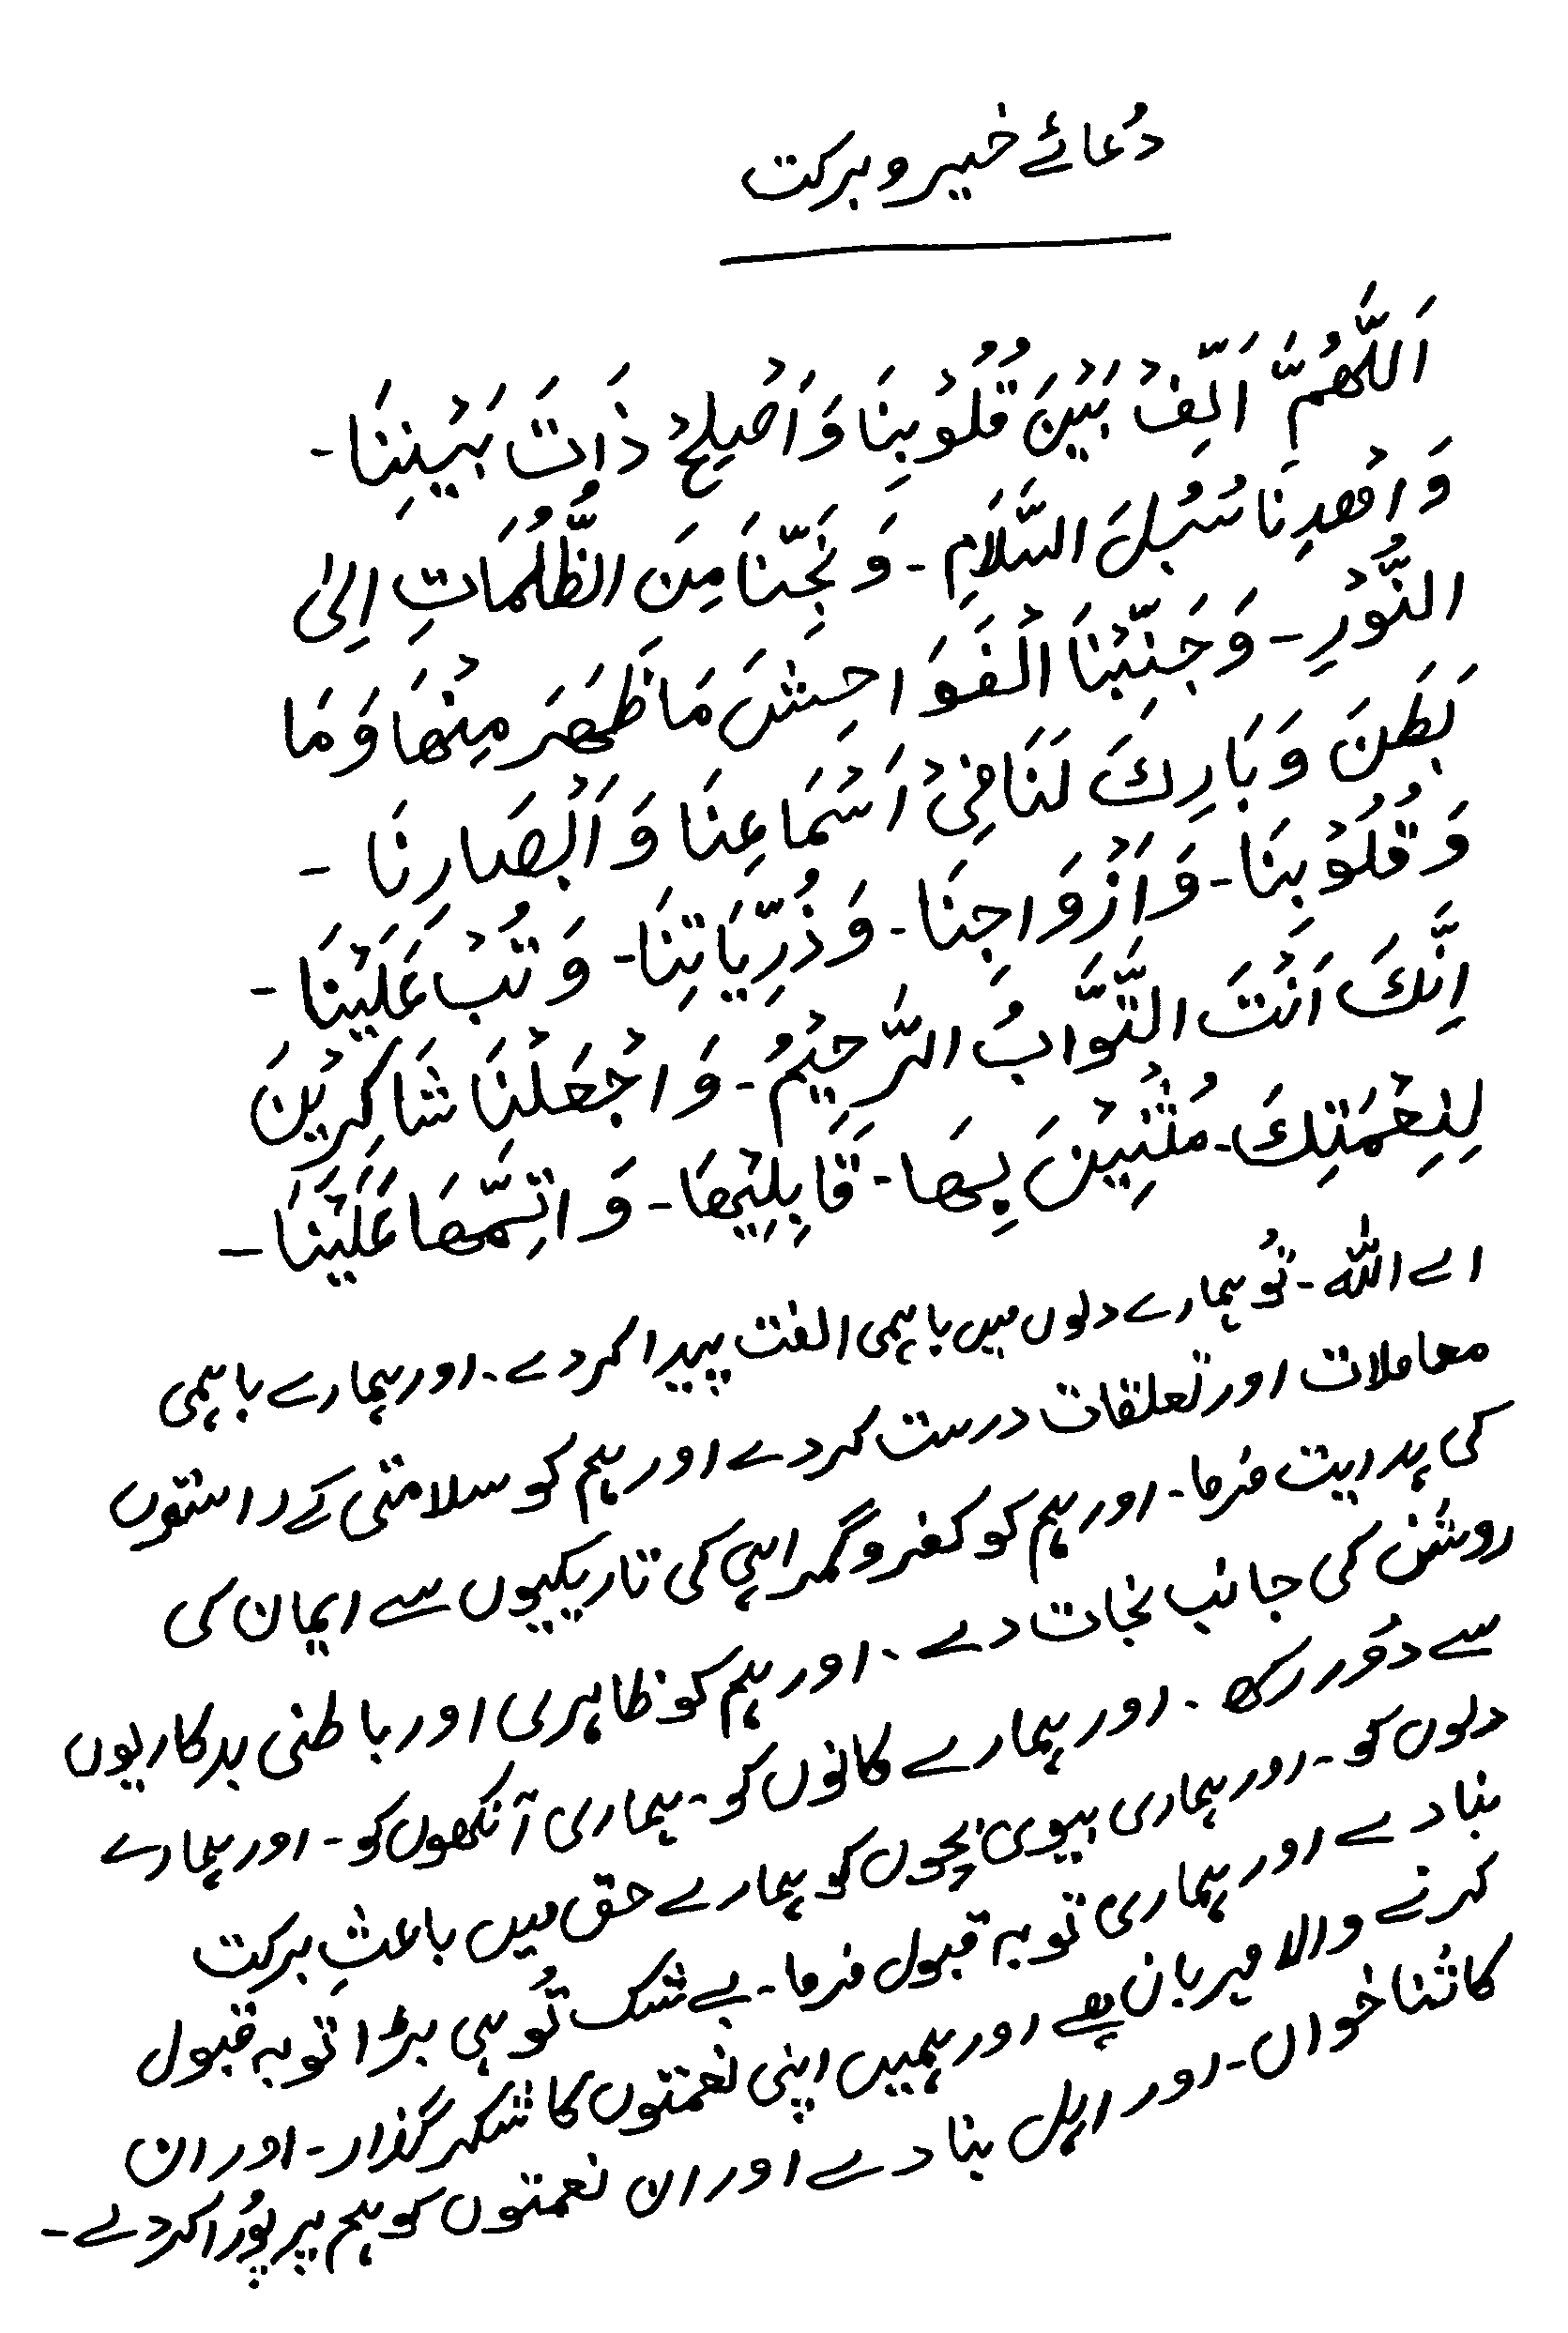 دُعائے خیر و برکت
اَللّٰهُمَّ اَلِّفْ بَيْنَ قُلُوْبِنَا وَاَصْلِحْ ذَاتَ بَيْنِنَا -
وَاهْدِنَا سُبُلَ السَّلَامِ - وَ نَجِّنَا مِنَ الظُّلُمَاتِ اِلیٰ
النُّوْرِ - وَجَنِّبْنَا الْفَوَاحِشَ مَا ظَهَرَ مِنْهَا وَمَا
بَطَنَ وَبَارِكَ لَنَا فِیْ اَسْمَاعِنَا وَاَبْصَارِنَا -
وَقُلُوْبِنَا - وَاَزْوَاجِنَا - وَذُرِّيَاتِنَا - وَتُبْ عَلَيْنَا -
اِنَّكَ اَنْتَ التَّوَّابُ الرَّحِيْمُ - وَاجْعَلْنَا شَاكِرِيْنَ
لِنِعْمَتِكَ - مُثْنِيْنَ بِهَا - قَابِلِيْهَا - وَاَتِمَّهَا عَلَيْنَا -
اے اللہ - تُو ہمارے دلوں میں باہمی الفت پیدا کردے - اور ہمارے باہمی
معاملات اور تعلقات درست کردے اور ہم کو سلامتی کے راستوں
کی ہدایت فرما - اور ہم کو کفر و گمراہی کی تاریکیوں سے ایمان کی
روشنی کی جانب نجات دے - اور ہم کو ظاہری اور باطنی بدکاریوں
سے دُور رکھ - اور ہمارے کانوں کو - ہماری آنکھوں کو - اور ہمارے
دلوں کو - اور ہماری بیوی بچوں کو ہمارے حق میں باعثِ برکت
بنا دے اور ہماری توبہ قبول فرما - بے شک تُو ہی بڑا توبہ قبول
کرنے والا مہربان ہے اور ہمیں اپنی نعمتوں کا شکر گذار - اور ان
کا ثنا خواں - اور اہل بنا دے اور ان نعمتوں کو ہم پر پُورا کردے -